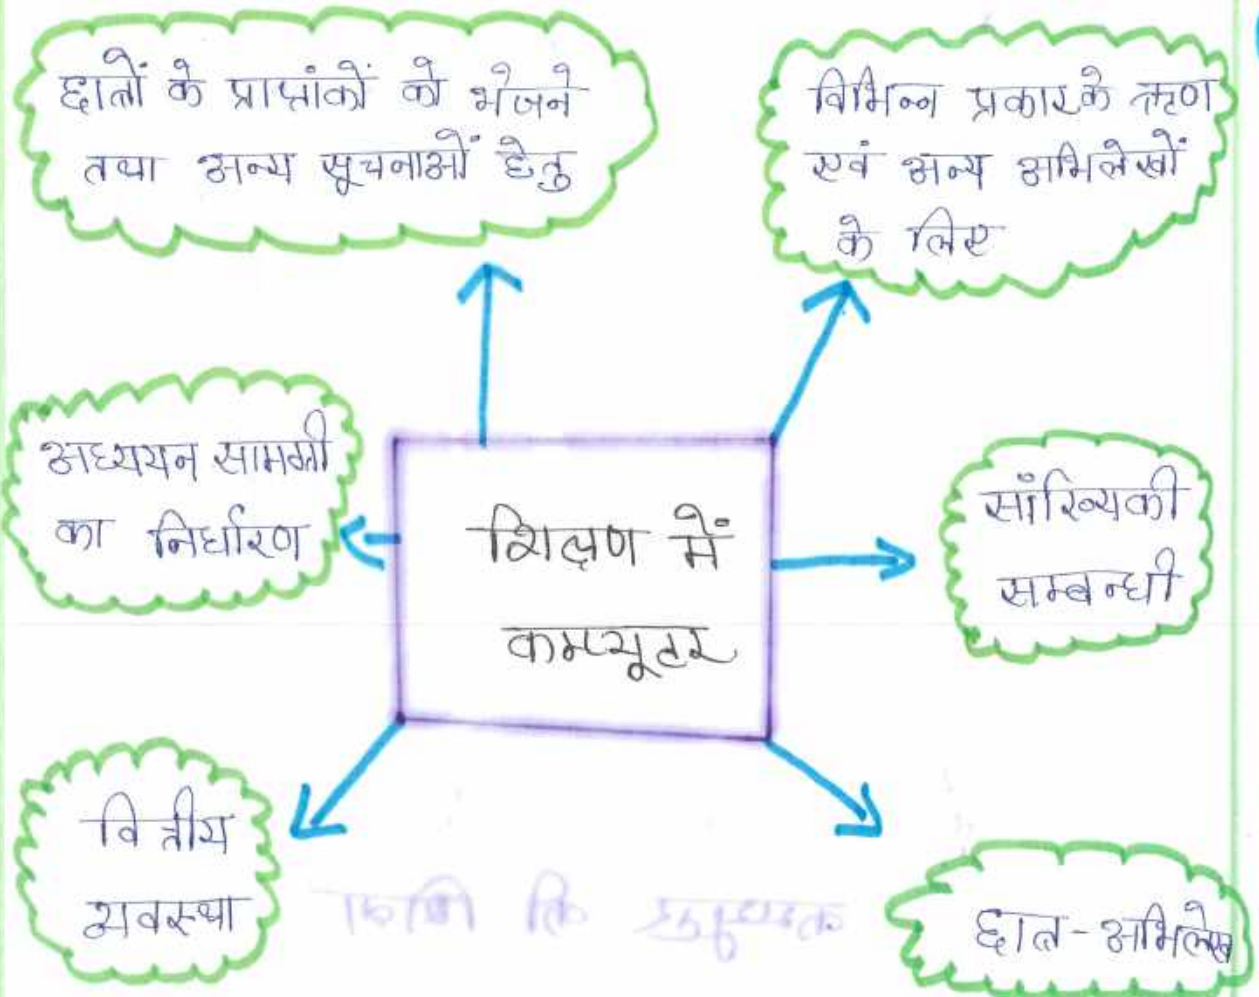 छात्रों के प्राप्तांकों को भेजने
तथा अन्य सूचनाओं हेतु
विभिन्न प्रकार के ऋण
एवं अन्य अभिलेखों
के लिए
अध्ययन सामग्री
का निर्धारण
शिक्षण में
कम्प्यूटर
सांख्यिकी
सम्बन्धी
वित्तीय
व्यवस्था
छात्र-अभिलेख